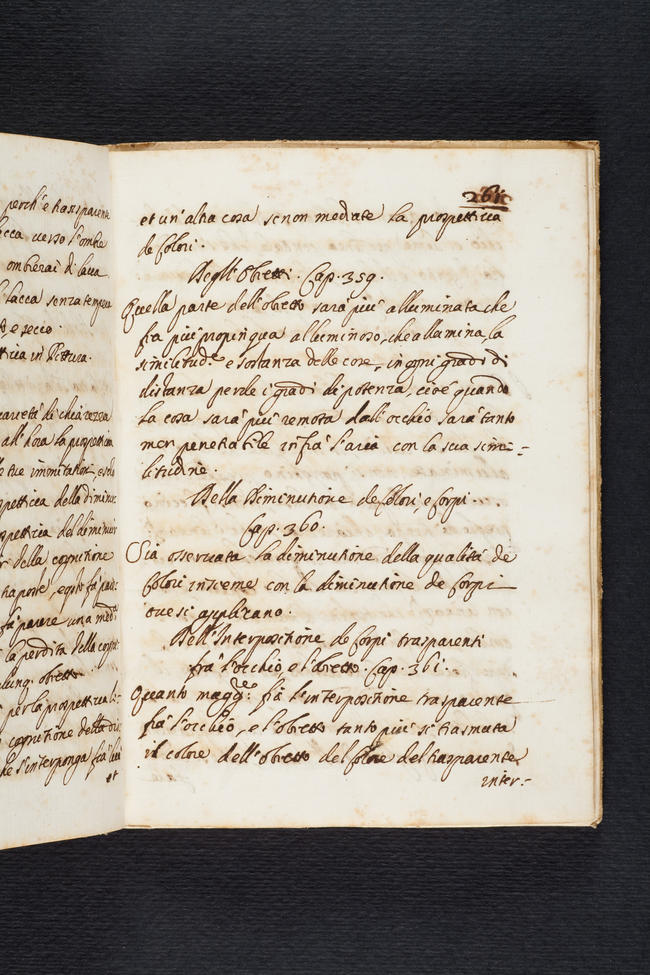 perch'e trasparente
lacca verso l'ombre
ombrerai di lacca
lacca senza tempera
e secco.
in Pittura.
varietà di chiarezza
all'hora la prospettiua
tue immitationi, e solo
prospettiua della diminut
prospettiua del diminuir
della cognitione
fà parere una med.ma
la perdita della cognit
obietto
per la prospettiua
cognitione della
che s'interponga frà
et
261
et un'altra cosa se non mediate la prospettiua
de colori.
Degl'Obietti. Cap. 359.
Quella parte dell'obietto sarà più alluminata che
fia più propinqua al luminoso, che allumina, la
similitud.e e sostanza delle cose, in ogni gradi di
distanza perde i gradi di potenza, cioè quando
la cosa sarà più remota dall'occhio sarà tanto
men penetrabile infrà l'aria con la sua simi-
litudine.
Della Diminutione de Colori, e Corpi.
Cap. 360.
Sia osservata la diminutione della qualità de
Colori insieme con la diminutione de Corpi
oue si applicano.
Dell'Interpositione de Corpi trasparenti
frà l'occhio, e l'obietto. Cap. 361.
Quanto magg.re fia l'interpositione trasparente
frà l'occhio, e l'obietto tanto più si trasmuta
il colore dell'obietto del Colore del trasparente
inter-